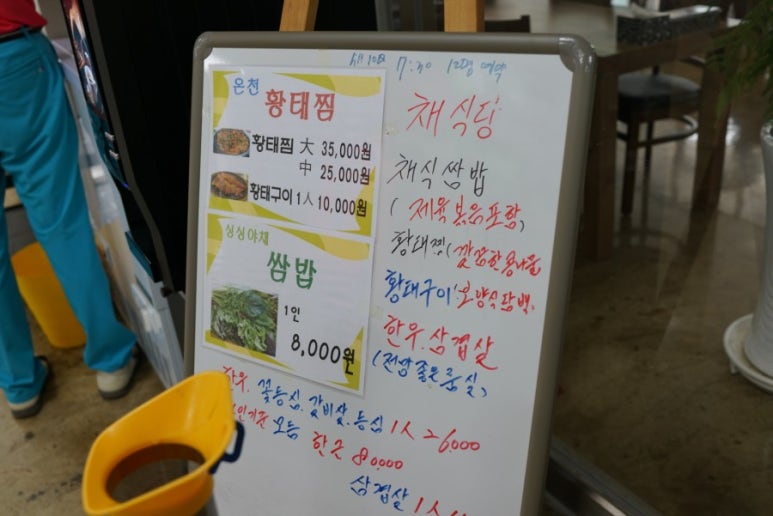 7:30 12명 예약
온천
황태찜
황태찜 大 35,000원
中 25,000원
황태구이 1人 10,000원
싱싱야채
쌈밥
1인
8,000원
채식당
채식쌈밥
(제육볶음포함)
황태찜(깔끔한콩나물
황태구이
한우.삼겹살
(전망좋은룸실)
한우. 꽃등심.갈비살.등심 1人 26,000
모듬 한근 80,000
삼겹살 1人